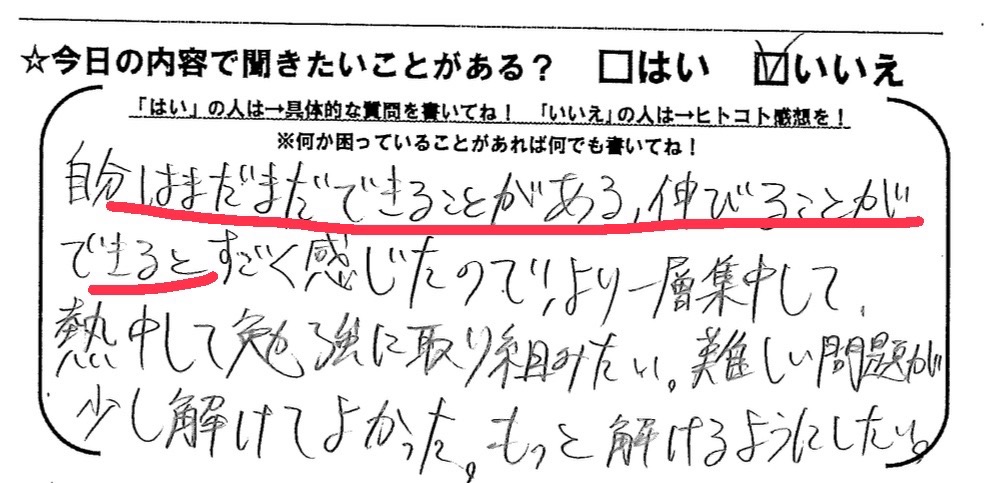 ☆今日の内容で聞きたいことがある? □はい ☑いいえ
「はい」の人は→具体的な質問を書いてね! 「いいえ」の人は→ヒトコト感想を!
※何か困っていることがあれば何でも書いてね!
自分はまだまだできることがある、伸びることが
できるとすごく感じたので、より一層集中して、
熱中して勉強に取り組みたい。難しい問題が
少し解けてよかった。もっと解けるようにしたい。